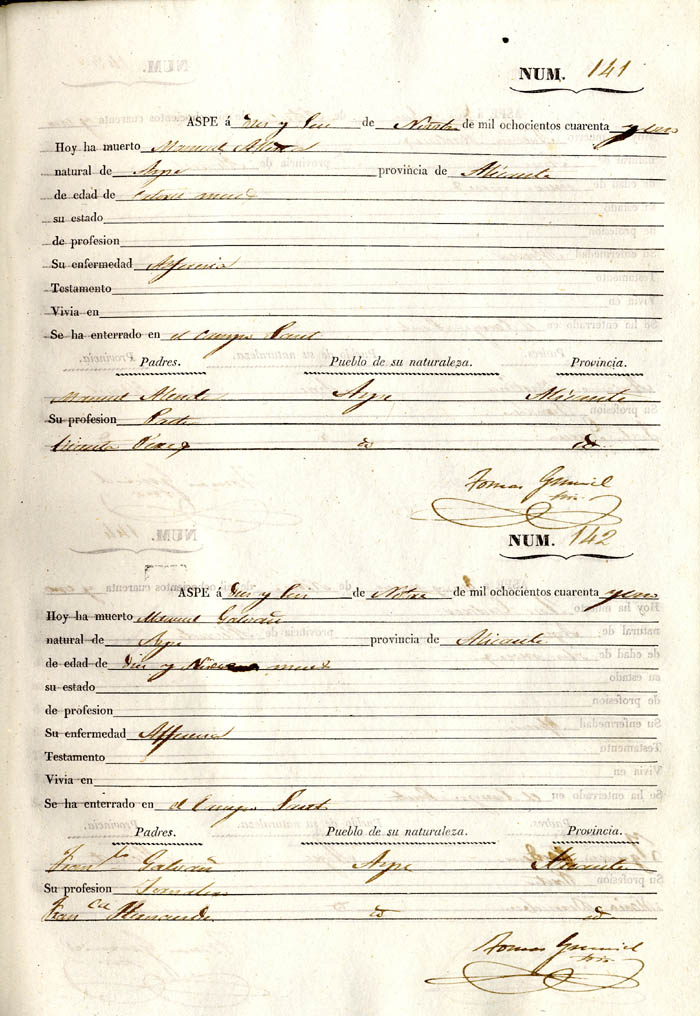 NUM. 141
ASPE á diez y seis de Novbre de mil ochocientos cuarenta y uno
Hoy ha muerto Manuel
natural de Aspe provincia de Alicante
de edad de meses
su estado
de profesion
Su enfermedad
Testamento
Vivia en
Se ha enterrado en el Campo Santo
Padres. Pueblo de su naturaleza. Provincia.
Manuel Aspe Alicante
Su profesion
Vicenta Perez id id
Tomas
NUM. 142
ASPE á diez y seis de Novbre de mil ochocientos cuarenta y uno
Hoy ha muerto Manuel Galvañ
natural de Aspe provincia de Alicante
de edad de diez y meses
su estado
de profesion
Su enfermedad
Testamento
Vivia en
Se ha enterrado en el Campo Santo
Padres. Pueblo de su naturaleza. Provincia.
Franco Galvañ Aspe Alicante
Su profesion Jornalero
Franca Hernandez id id
Tomas